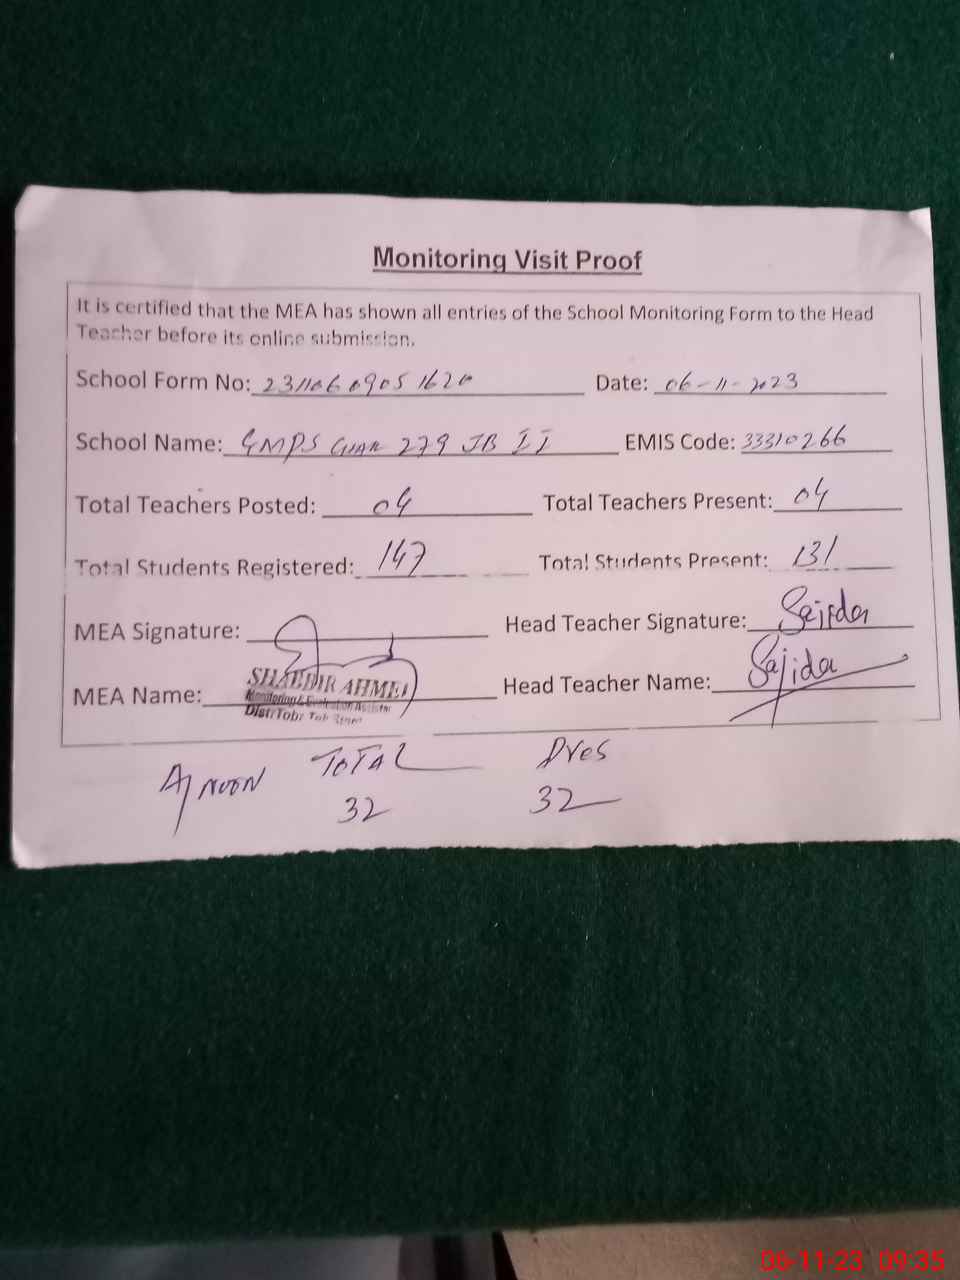 Monitoring Visit Proof
It is certified that the MEA has shown all entries of the School Monitoring Form to the Head
Teacher before its online submission.
School Form No: 23110609051620 Date: 06-11-2023
School Name: GMPS 279 JB II EMIS Code: 33310266
Total Teachers Posted: 04 Total Teachers Present: 04
Total Students Registered: 147 Total Students Present: 131
MEA Signature: Head Teacher Signature: Sajida
MEA Name: SHABBIR AHMED Head Teacher Name: Sajida
Monitoring & Evaluation Assistant
Distt Toba Tek Singh
A/NOON TOTAL Pres
32 32
06-11-23 09:35